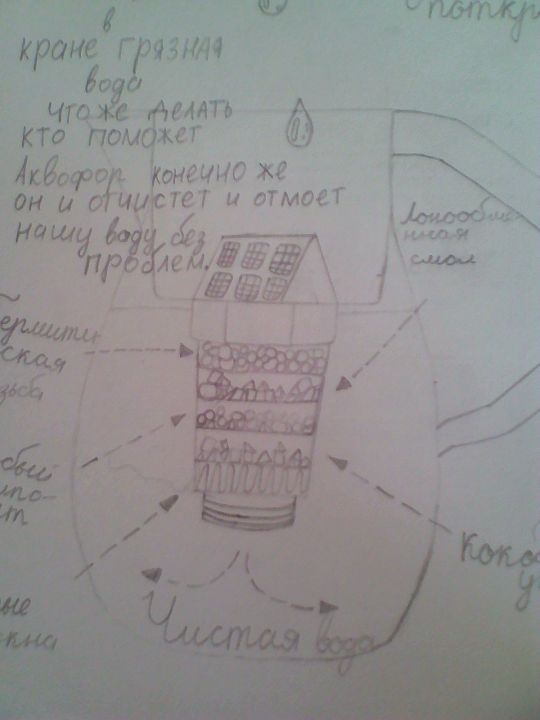 в
кране грязная
вода
что же делать
кто поможет
Аквофор конечно же
он и отчистет и отмоет
нашу воду без
проблем.
поткр
нная
смол
ермити
ская
зьба
Коко
Чистая вода